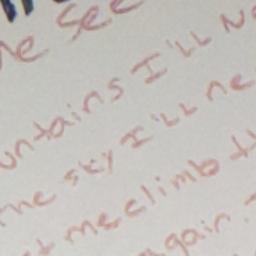 he see
untains I'll N
me sky I'll ne
t me climb t
gain.